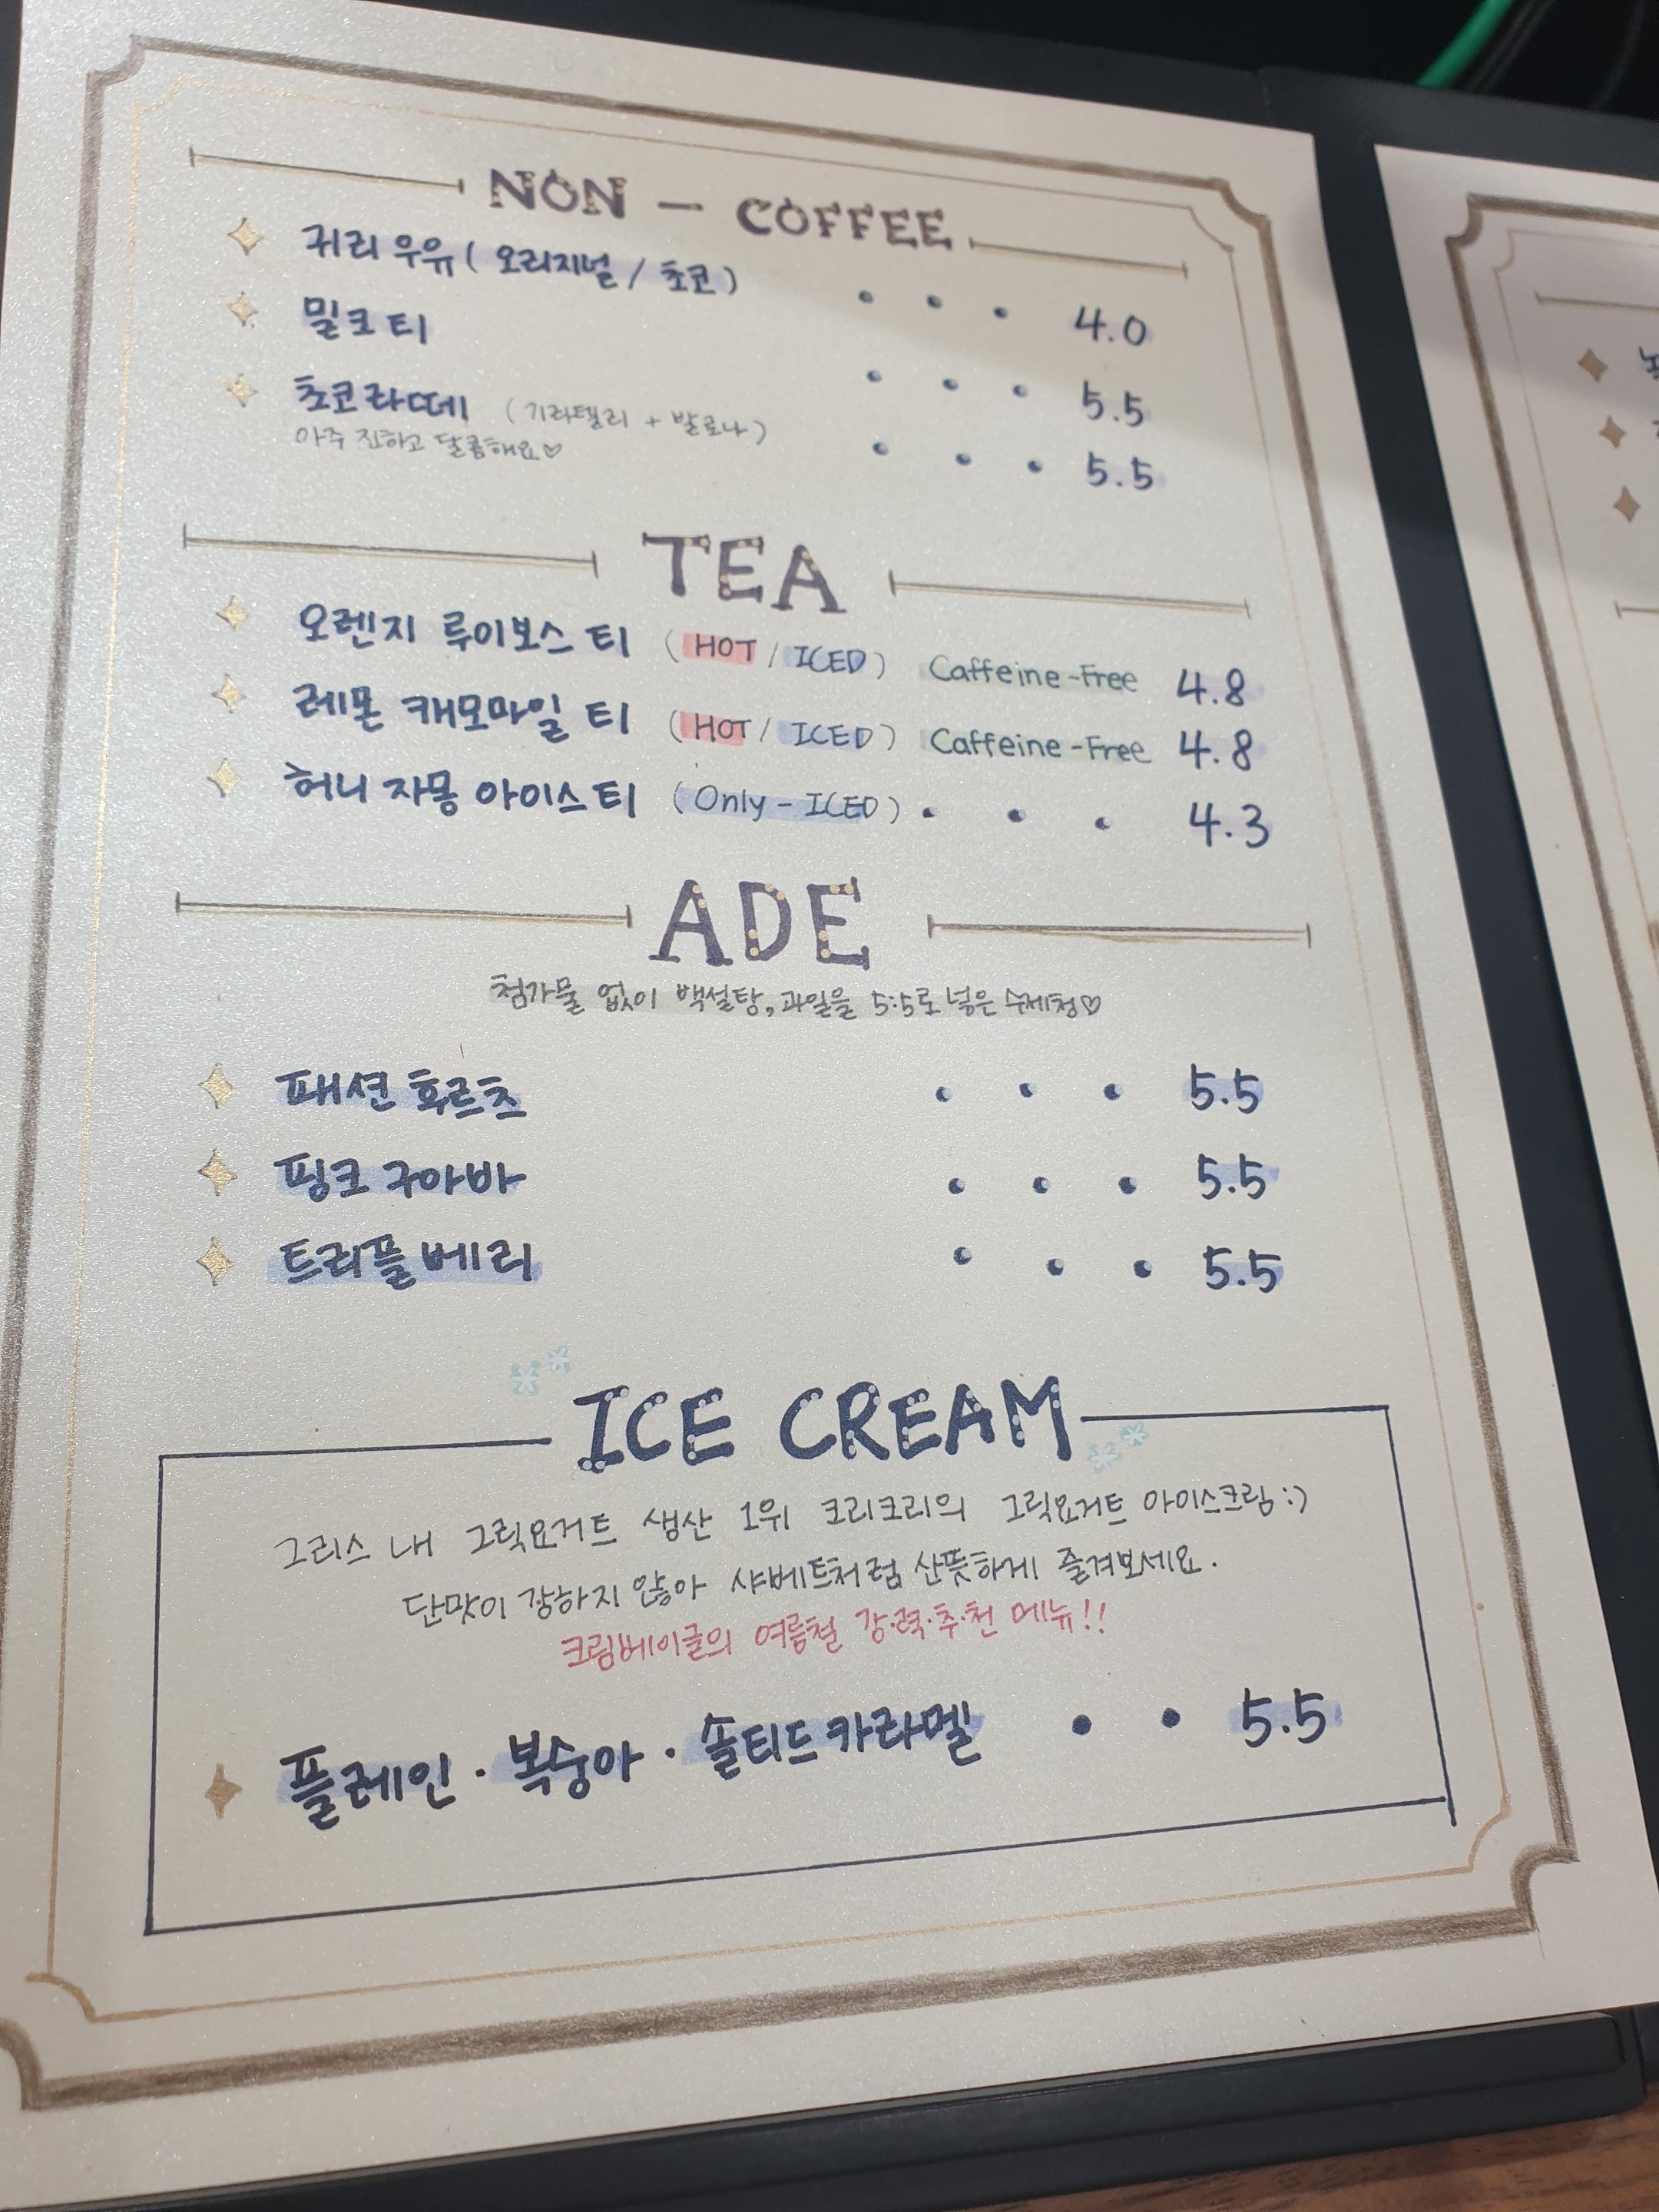 NON - COFFEE
귀리우유 (오리지널 / 초코) • • • 4.0
밀크티 • • • 5.5
초코라떼 (기라델리 + 발로나) • • • 5.5
아주 진하고 달콤해요♡
TEA
오렌지 루이보스 티 (HOT / ICED) Caffeine-Free 4.8
레몬 캐모마일 티 (HOT / ICED) Caffeine-Free 4.8
허니 자몽 아이스티 (Only - ICED) • • • 4.3
ADE
첨가물 없이 백설탕, 과일을 5:5로 넣은 수제청♡
패션 후르츠 • • • 5.5
핑크 구아바 • • • 5.5
트리플베리 • • • 5.5
ICE CREAM
그리스 내 그릭요거트 생산 1위 크리크리의 그릭요거트 아이스크림 :)
단맛이 강하지 않아 샤베트처럼 산뜻하게 즐겨보세요.
크림베이글의 여름철 강·력·추·천 메뉴!!
플레인 · 복숭아 · 솔티드카라멜 • • 5.5